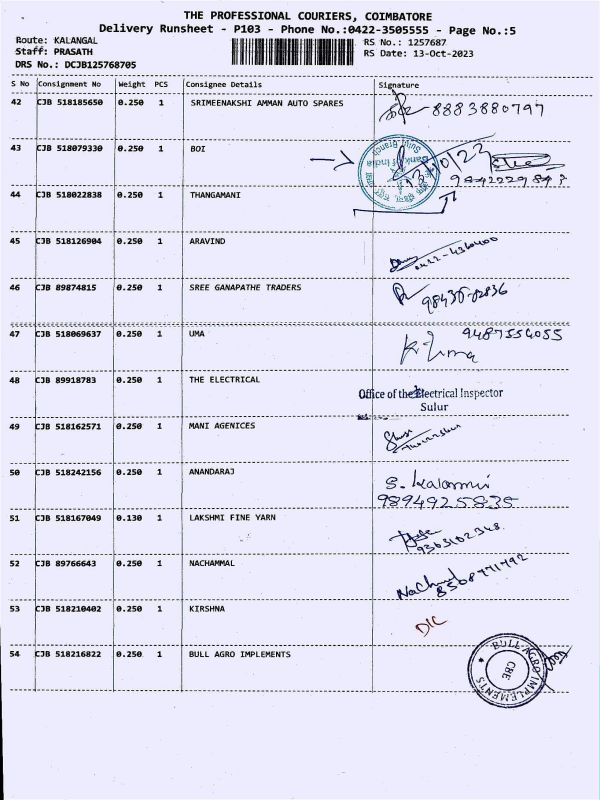 THE PROFESSIONAL COURIERS, COIMBATORE
Delivery Runsheet - P103 - Phone No.:0422-3505555 - Page No.:5
Route: KALANGAL RS No.: 1257687
Staff: PRASATH RS Date: 13-Oct-2023
DRS No.: DCJB125768705
S No Consignment No Weight PCS Consignee Details Signature
42 CJB 518185650 0.250 1 SRIMEENAKSHI AMMAN AUTO SPARES 8883880797
43 CJB 518079330 0.250 1 BOI
Bank of India
Sulur Branch
44 CJB 518022838 0.250 1 THANGAMANI
45 CJB 518126904 0.250 1 ARAVIND
0422-4360400
46 CJB 89874815 0.250 1 SREE GANAPATHE TRADERS
98430-02836
47 CJB 518069637 0.250 1 UMA 9487554055
K. Uma
48 CJB 89918783 0.250 1 THE ELECTRICAL
Office of the Electrical Inspector
Sulur
49 CJB 518162571 0.250 1 MANI AGENICES
50 CJB 518242156 0.250 1 ANANDARAJ
S. Kalammi
9894925835
51 CJB 518167049 0.130 1 LAKSHMI FINE YARN
9363102348
52 CJB 89766643 0.250 1 NACHAMMAL
8508771792
53 CJB 518210402 0.250 1 KIRSHNA
D/C
54 CJB 518216822 0.250 1 BULL AGRO IMPLEMENTS
BULL AGRO IMPLEMENTS
CBE